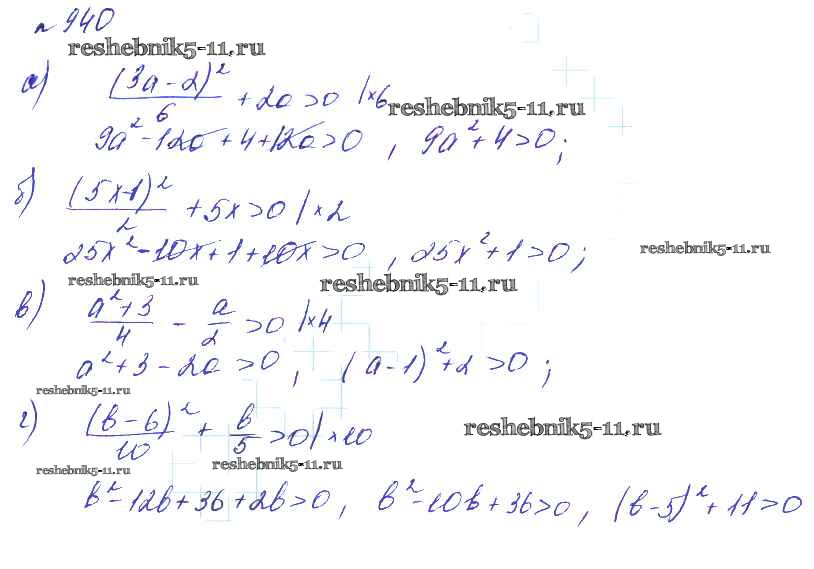 № 940
reshebnik5-11.ru
а) (3a-2)²/6 + 2a > 0 |×6
reshebnik5-11.ru
9a² - 12a + 4 + 12a > 0 , 9a² + 4 > 0 ;
б) (5x-1)²/2 + 5x > 0 |×2
25x² - 10x + 1 + 10x > 0 , 25x² + 1 > 0 ;
reshebnik5-11.ru
reshebnik5-11.ru
reshebnik5-11.ru
в) a²+3/4 - a/2 > 0 |×4
a² + 3 - 2a > 0 , (a-1)² + 2 > 0 ;
reshebnik5-11.ru
г) (b-6)²/10 + b/5 > 0 |×10
reshebnik5-11.ru
reshebnik5-11.ru
reshebnik5-11.ru
b² - 12b + 36 + 2b > 0 , b² - 10b + 36 > 0 , (b-5)² + 11 > 0